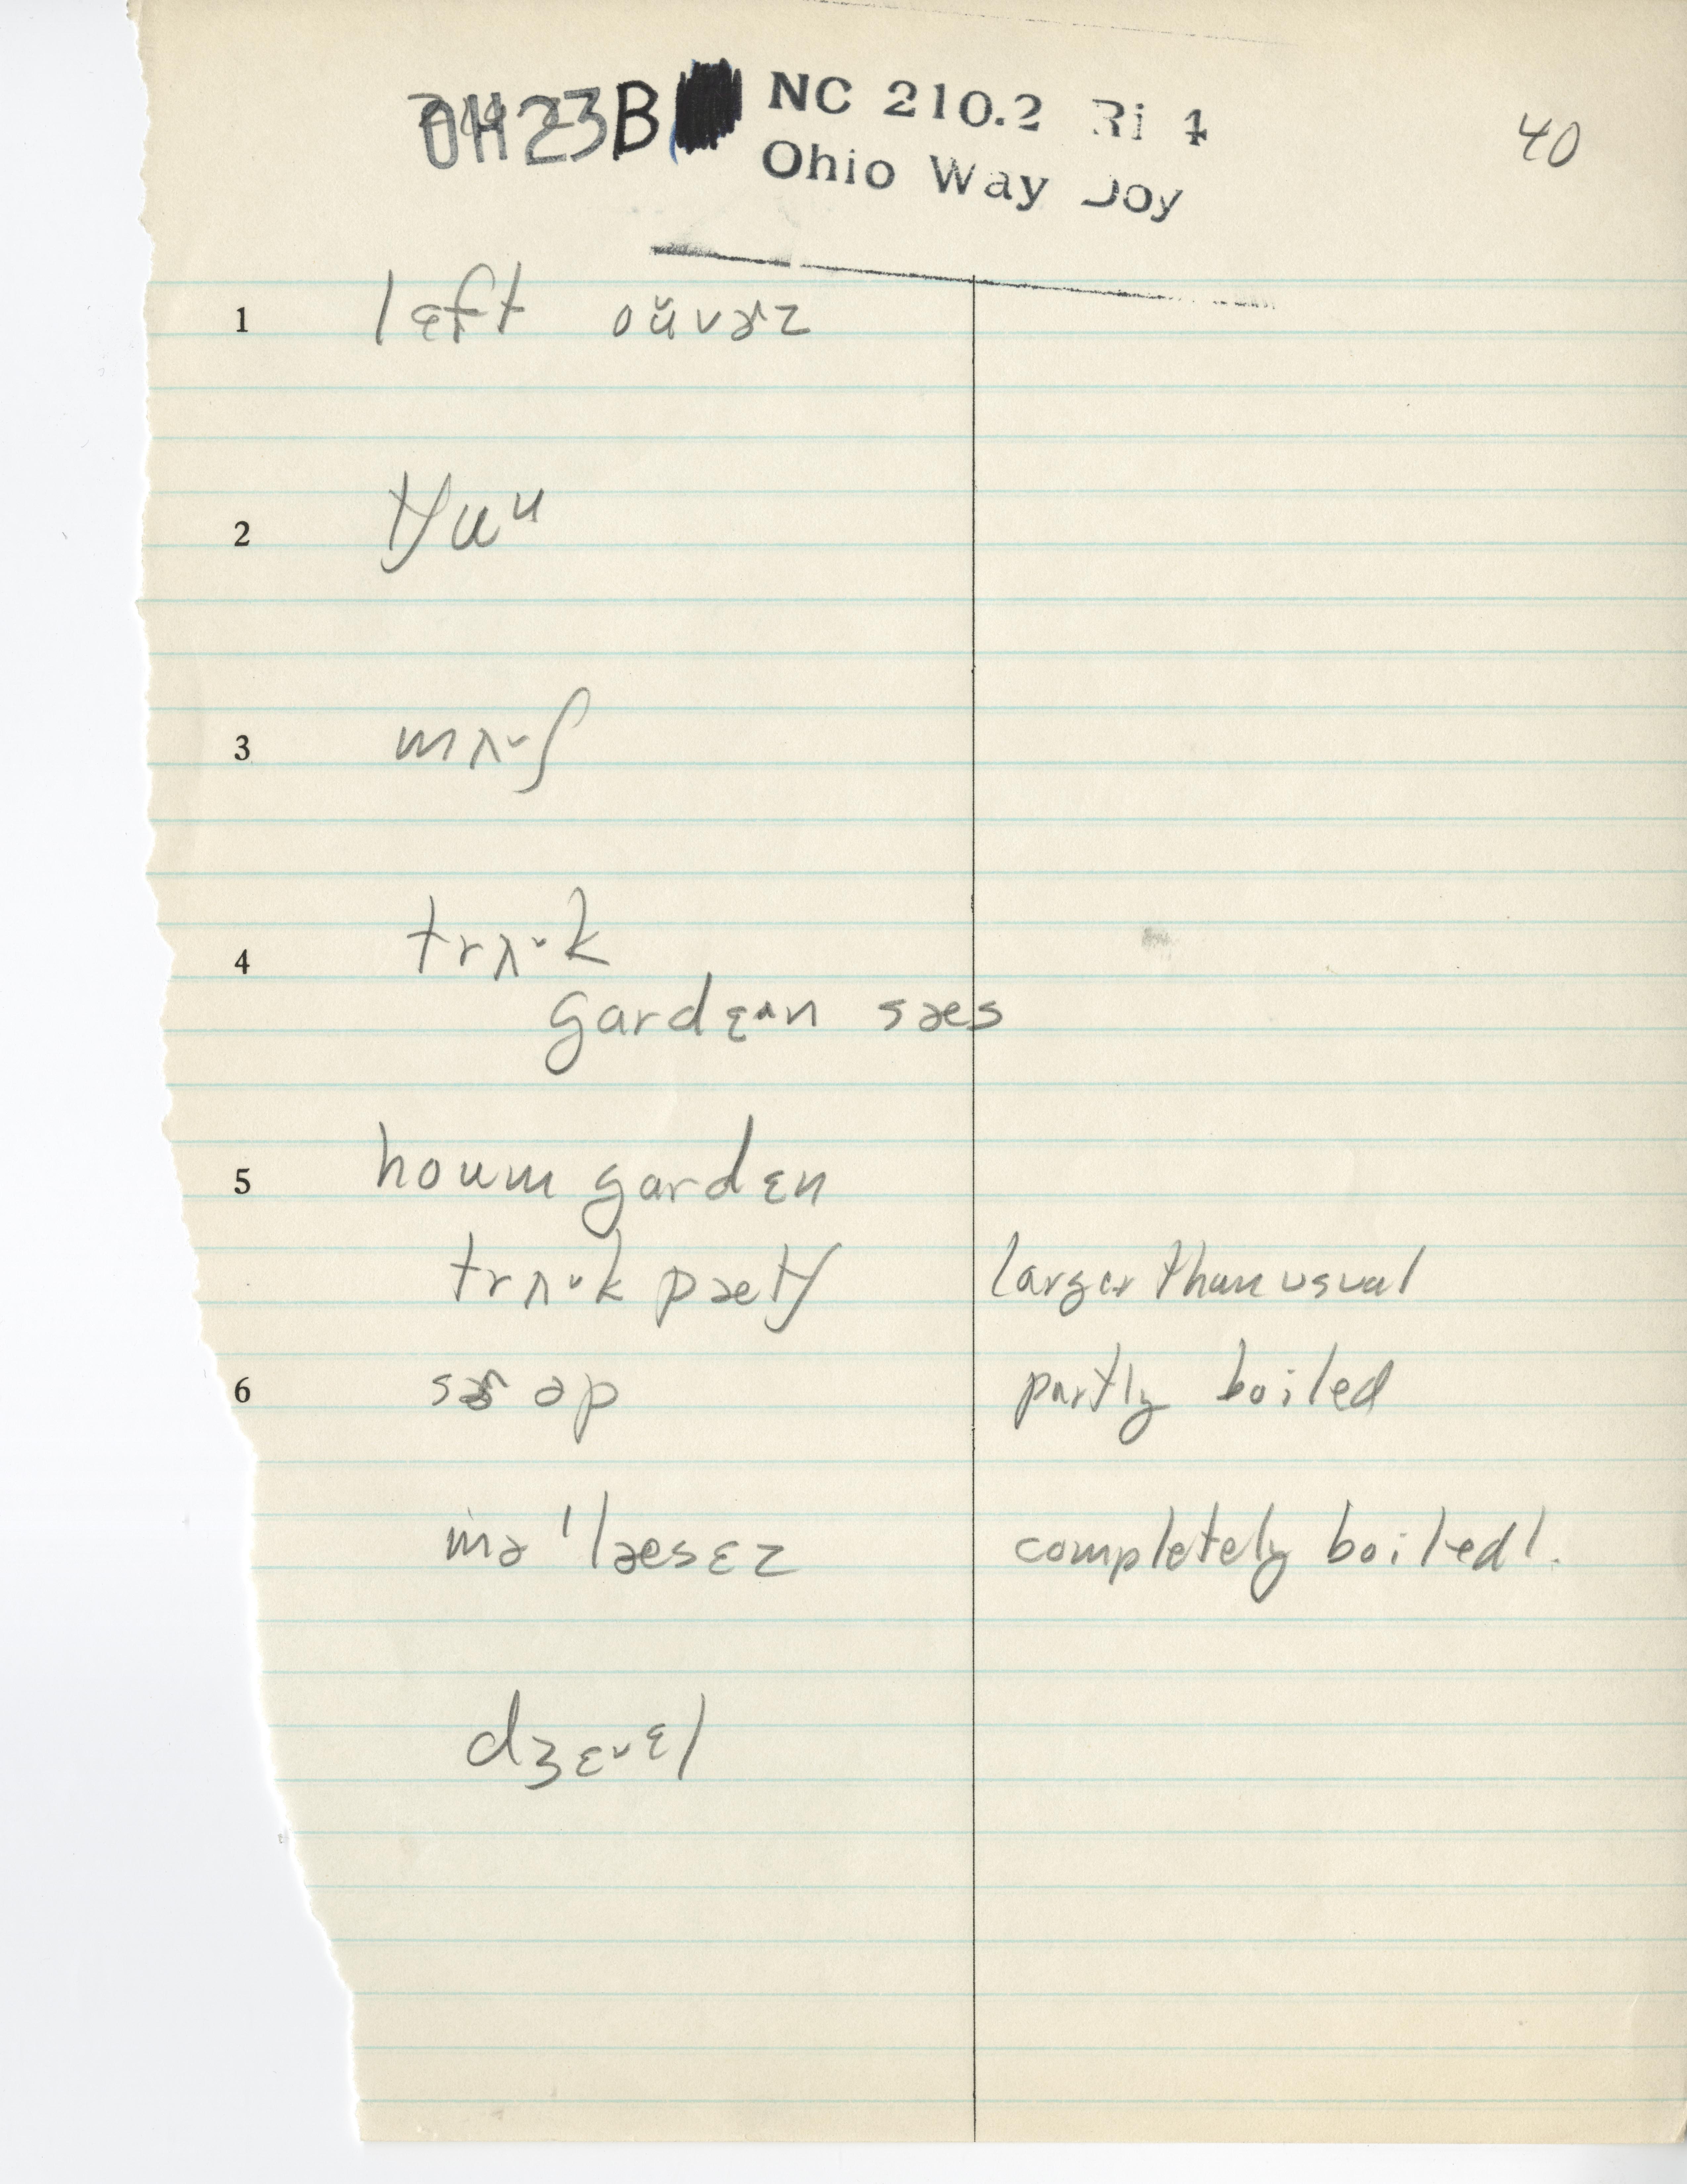 OH23B NC 210.2 Ri 4
Ohio Way Doy
40
1 lɛft oŭvɚz
2 tʃuᵘ
3 mʌˇʃ
4 trʌˇk
gardɛ^n sæs
5 houm gardɛn
trʌˇk pætʃ larger than usual
6 sɚəp partly boiled
mə'læsɛz completely boiled.
dʒɛˇɛl